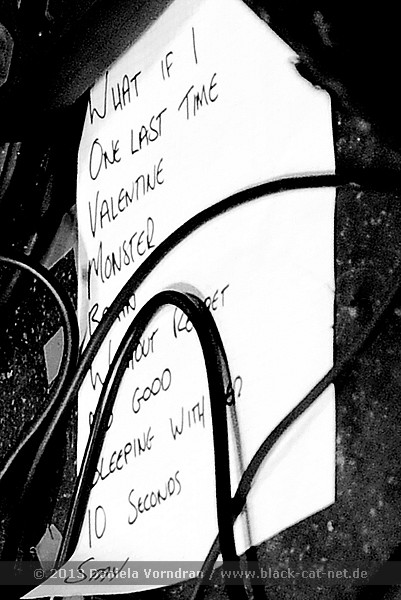 WHAT IF I
ONE LAST TIME
VALENTINE
MONSTER
WITHOUT REGRET
GOOD
SLEEPING WITH
10 SECONDS
© 2013 Daniela Vorndran / www.black-cat-net.de